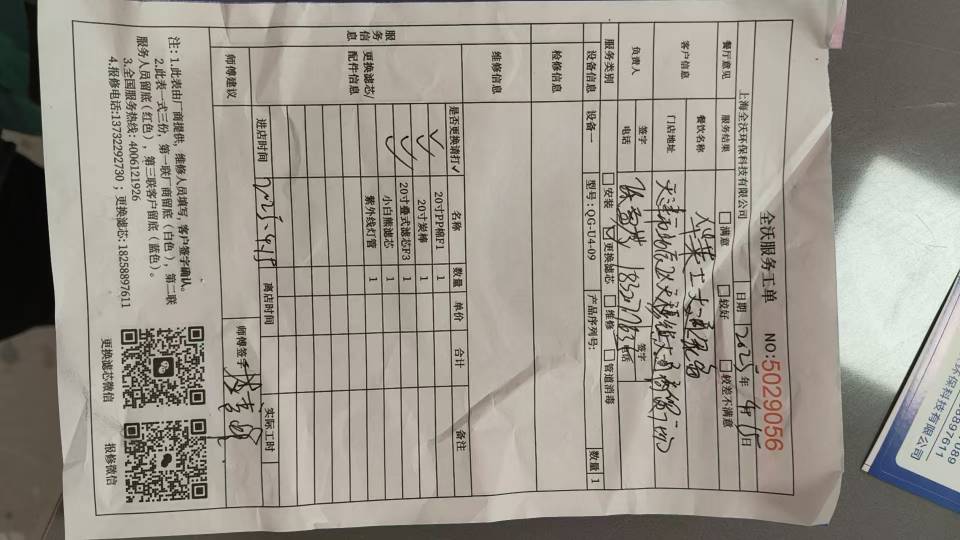 全沃服务工单 NO:5029056
上海全沃环保科技有限公司 日期 2025年4月 日
餐厅意见 服务结果 □满意 □较好 □较差不满意
客户信息 餐饮名称
门店地址 天津市
负责人 签字 签字
电话 电话
服务类别 □安装 ☑更换滤芯 □维修 □管道消毒
设备信息 设备一 型号:QG-U4-09 产品序列号: 数量 1
服务信息
检修信息
维修信息
更换滤芯/配件信息 是否更换请打✓ 名称 数量 单价 合计 备注
✓ 20寸PP棉F1 1
✓ 20寸炭棒 1
✓ 20寸叠式滤芯F3 1
✓ 小白熊滤芯 1
紫外线灯管 1
师傅建议 进店时间 离店时间 实际工时
师傅签字
注:1.此表由厂商提供,维修人员填写,客户签字确认。
2.此表一式三份,第一联厂商留底(白色),第二联
服务人员留底(红色),第三联客户留底(蓝色)。
3.全国服务热线:4006121926
4.报修电话:13732292730;更换滤芯:18258897611
更换滤芯微信 报修微信
环保科技有限公司